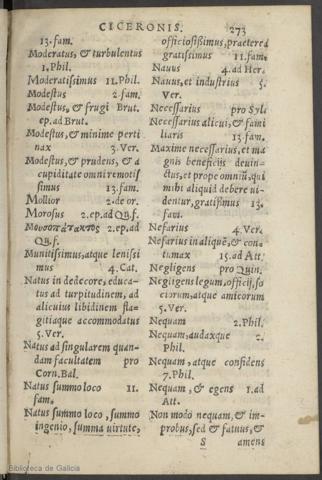 CICERONIS. 273
13. fam.
Moderatus, & turbulentus
1. Phil.
Moderatissimus 11. Phil.
Modestus 2. fam.
Modestus, & frugi Brut.
ep. ad Brut.
Modestus, & minime perti
nax 3. Ver.
Modestus, & prudens, & a
cupiditate omni remotis
simus 13. fam.
Mollior 2. de or.
Morosus 2. ep. ad Q. f.
2. ep. ad
Q. f.
Munitissimus, atque lenissi
mus 4. Cat.
Natus in dedecore, educa-
tus ad turpitudinem, ad
alicuius libidinem fla-
gitiaque accommodatus
5. Ver.
Natus ad singularem quan-
dam facultatem pro
Corn. Bal.
Natus summo loco 11.
fam.
Natus summo loco, summo
ingenio, summa virtute,
officiosissimus, praeterea
gratissimus 11. fam.
Navus 4. ad Her.
Navus, et industrius 5.
Ver.
Necessarius pro Syl.
Necessarius alicui, & fami
liaris 13. fam.
Maxime necessarius, et ma
gnis beneficiis devin-
ctus, et prope omniũ, qui
mihi aliquid debere vi-
dentur, gratissimus 13.
fam.
Nefarius 4. Ver.
Nefarius in aliquē, & con-
tumax 15. ad Att.
Negligens pro Quin.
Negligens legum, officij, so
ciorum, atque amicorum
5. Ver.
Nequam 2. Phil.
Nequam, audaxque 2.
Phil.
Nequam, atque confidens
7. Phil.
Nequam, & egens 1. ad
Att.
Non modo nequam, & im-
probus, sed & fatuus, &
S amens
Biblioteca de Galicia